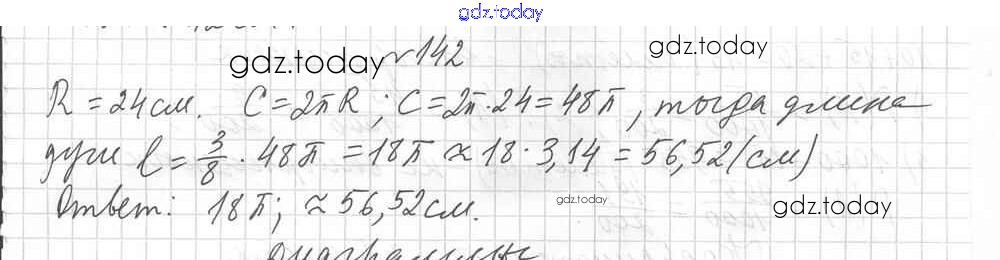 gdz.today
№ 142
gdz.today
gdz.today
R = 24 см. C = 2πR; C = 2π·24 = 48π, тогда длина
дуги l = 3/8 · 48π = 18π ≈ 18 · 3,14 = 56,52 (см)
Ответ: 18π; ≈ 56,52 см.
gdz.today
gdz.today